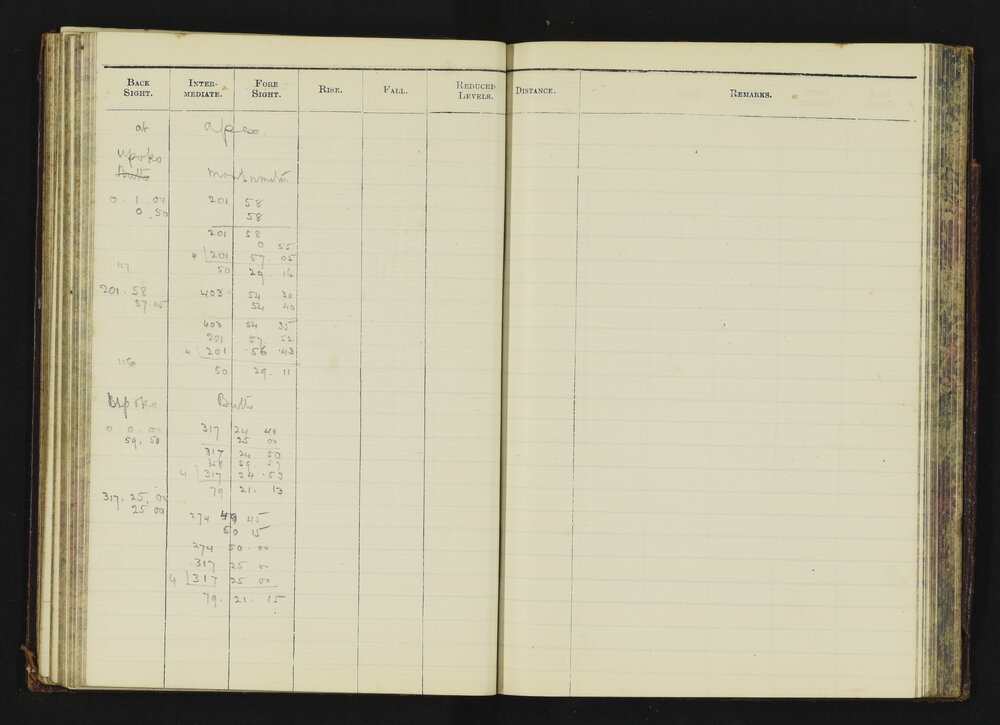 BACK SIGHT. INTER-MEDIATE. FORE SIGHT. RISE. FALL. REDUCED LEVELS. DISTANCE. REMARKS.
at
Upoko
Butts
0 . 1 . 00 201 58
0 . 50 58
201 58
0 55
4 201 57 . 05
117 50 29 . 16
201 . 58 403 54 30
57.45 54 40
403 54 35
201 57 52
4 201 56 43
116 50 29 . 11
Upoko Butts
0 . 0 . 00 317 24 40
59 . 50 25 00
317 24 50
359 59 57
4 317 24 . 53
79 21 . 13
317 . 25 . 00
25 00
274 49 45
50 15
274 50 . 00
317 25 00
4 317 25 00
79 . 21 . 15